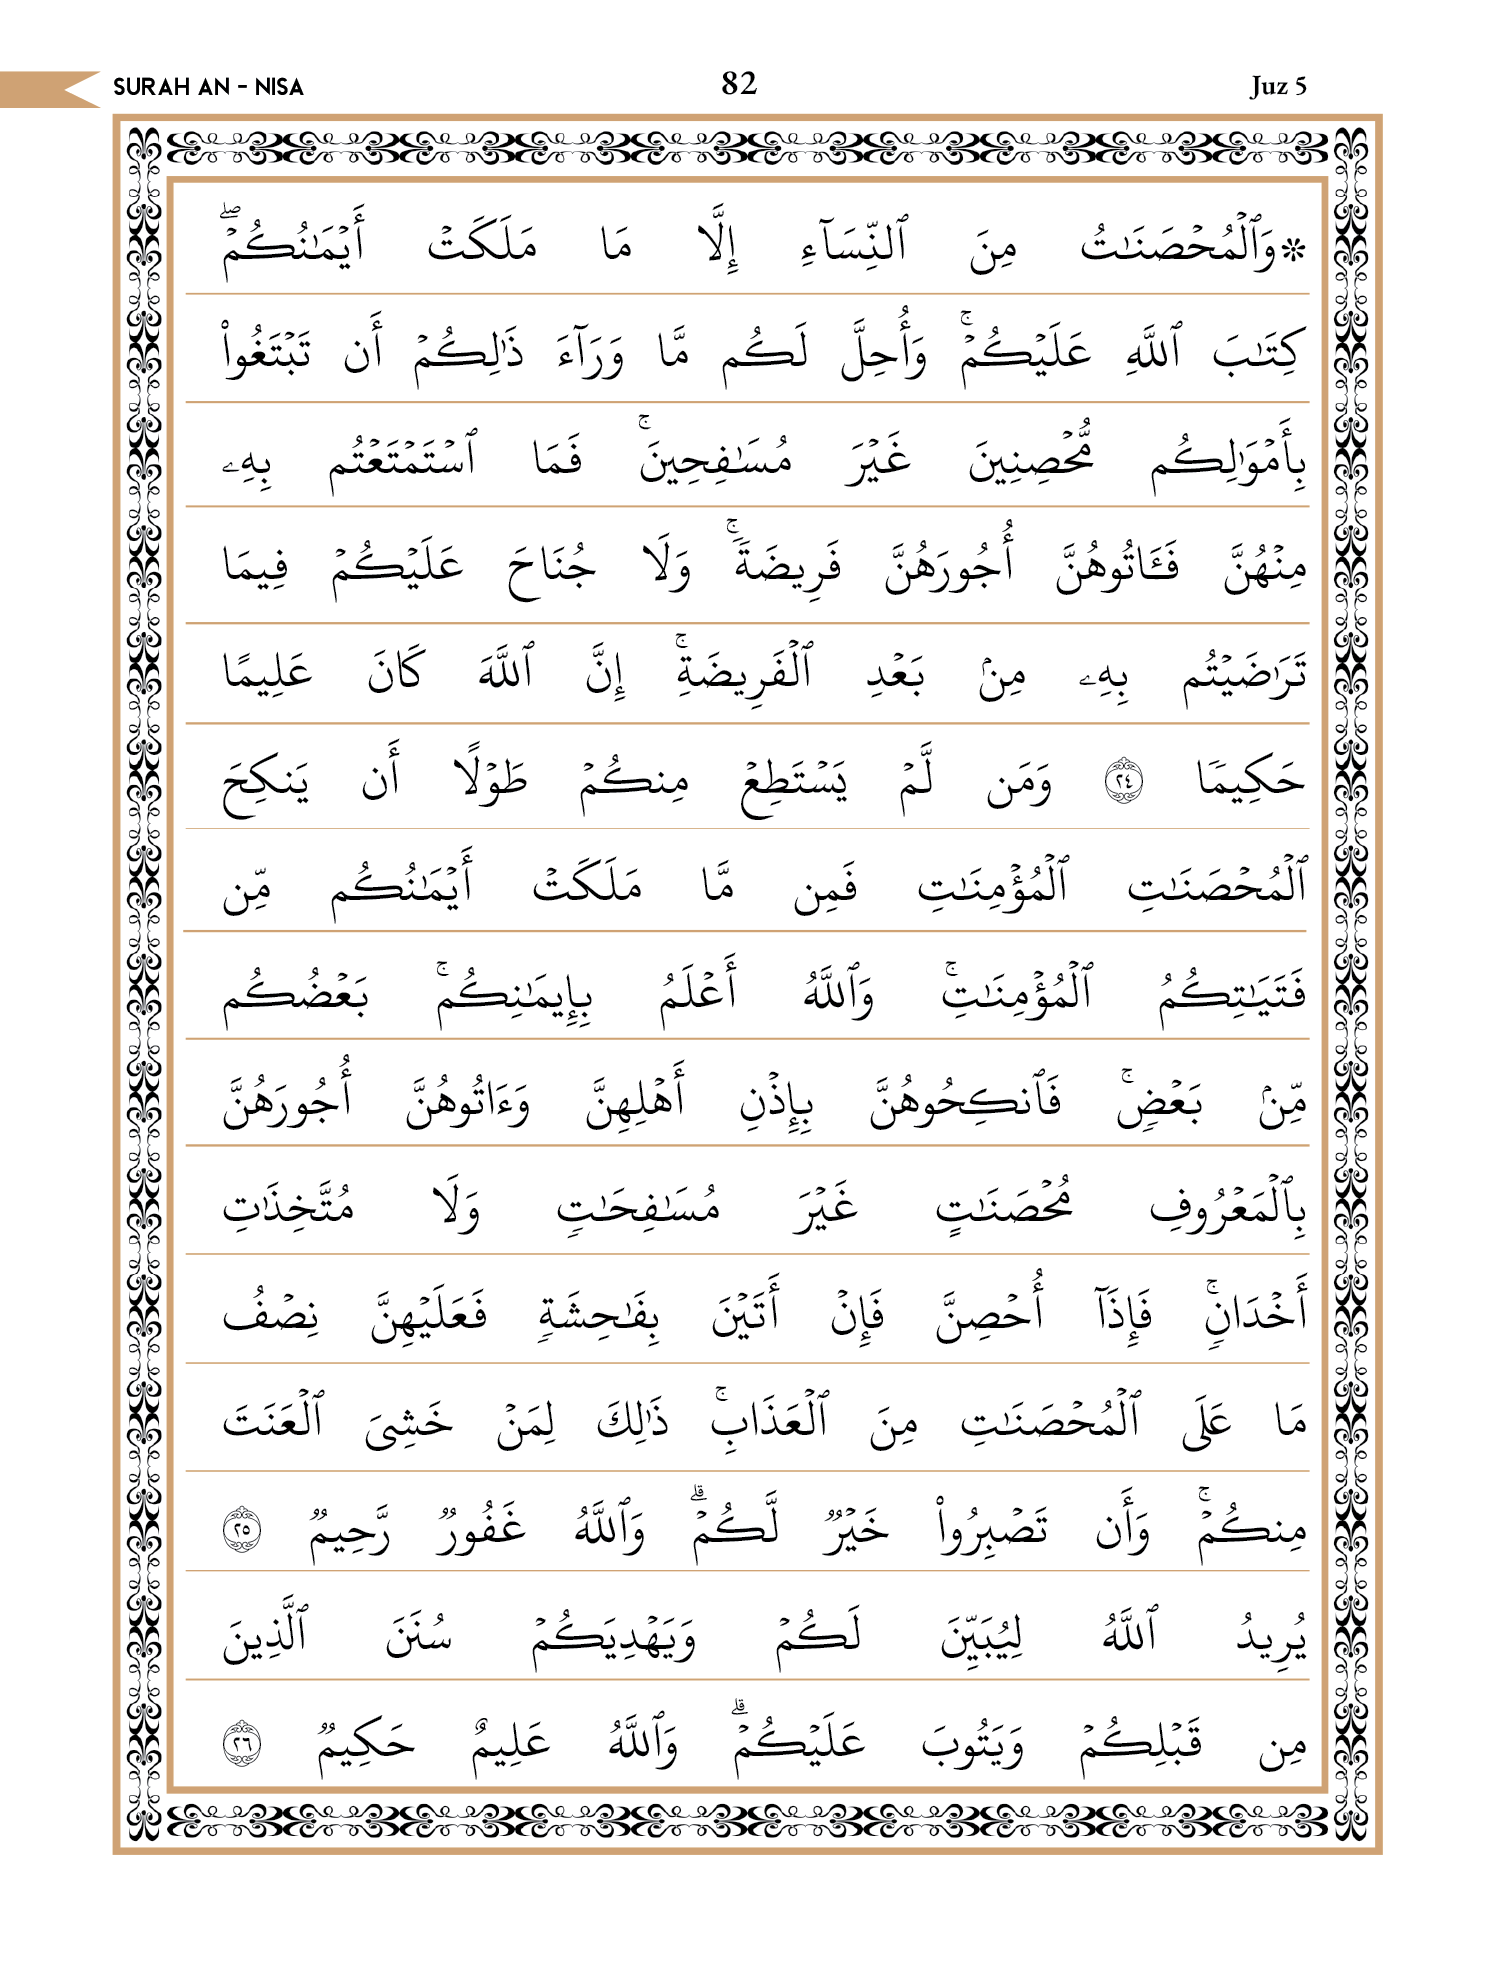 SURAH AN - NISA 82 Juz 5
۞وَٱلۡمُحۡصَنَٰتُ مِنَ ٱلنِّسَآءِ إِلَّا مَا مَلَكَتۡ أَيۡمَٰنُكُمۡۖ
كِتَٰبَ ٱللَّهِ عَلَيۡكُمۡۚ وَأُحِلَّ لَكُم مَّا وَرَآءَ ذَٰلِكُمۡ أَن تَبۡتَغُواْ
بِأَمۡوَٰلِكُم مُّحۡصِنِينَ غَيۡرَ مُسَٰفِحِينَۚ فَمَا ٱسۡتَمۡتَعۡتُم بِهِۦ
مِنۡهُنَّ فَـَٔاتُوهُنَّ أُجُورَهُنَّ فَرِيضَةٗۚ وَلَا جُنَاحَ عَلَيۡكُمۡ فِيمَا
تَرَٰضَيۡتُم بِهِۦ مِنۢ بَعۡدِ ٱلۡفَرِيضَةِۚ إِنَّ ٱللَّهَ كَانَ عَلِيمًا
حَكِيمٗا ٢٤ وَمَن لَّمۡ يَسۡتَطِعۡ مِنكُمۡ طَوۡلًا أَن يَنكِحَ
ٱلۡمُحۡصَنَٰتِ ٱلۡمُؤۡمِنَٰتِ فَمِن مَّا مَلَكَتۡ أَيۡمَٰنُكُم مِّن
فَتَيَٰتِكُمُ ٱلۡمُؤۡمِنَٰتِۚ وَٱللَّهُ أَعۡلَمُ بِإِيمَٰنِكُمۚ بَعۡضُكُم
مِّنۢ بَعۡضٖۚ فَٱنكِحُوهُنَّ بِإِذۡنِ أَهۡلِهِنَّ وَءَاتُوهُنَّ أُجُورَهُنَّ
بِٱلۡمَعۡرُوفِ مُحۡصَنَٰتٍ غَيۡرَ مُسَٰفِحَٰتٖ وَلَا مُتَّخِذَٰتِ
أَخۡدَانٖۚ فَإِذَآ أُحۡصِنَّ فَإِنۡ أَتَيۡنَ بِفَٰحِشَةٖ فَعَلَيۡهِنَّ نِصۡفُ
مَا عَلَى ٱلۡمُحۡصَنَٰتِ مِنَ ٱلۡعَذَابِۚ ذَٰلِكَ لِمَنۡ خَشِيَ ٱلۡعَنَتَ
مِنكُمۡۚ وَأَن تَصۡبِرُواْ خَيۡرٞ لَّكُمۡۗ وَٱللَّهُ غَفُورٞ رَّحِيمٞ ٢٥
يُرِيدُ ٱللَّهُ لِيُبَيِّنَ لَكُمۡ وَيَهۡدِيَكُمۡ سُنَنَ ٱلَّذِينَ
مِن قَبۡلِكُمۡ وَيَتُوبَ عَلَيۡكُمۡۗ وَٱللَّهُ عَلِيمٌ حَكِيمٞ ٢٦